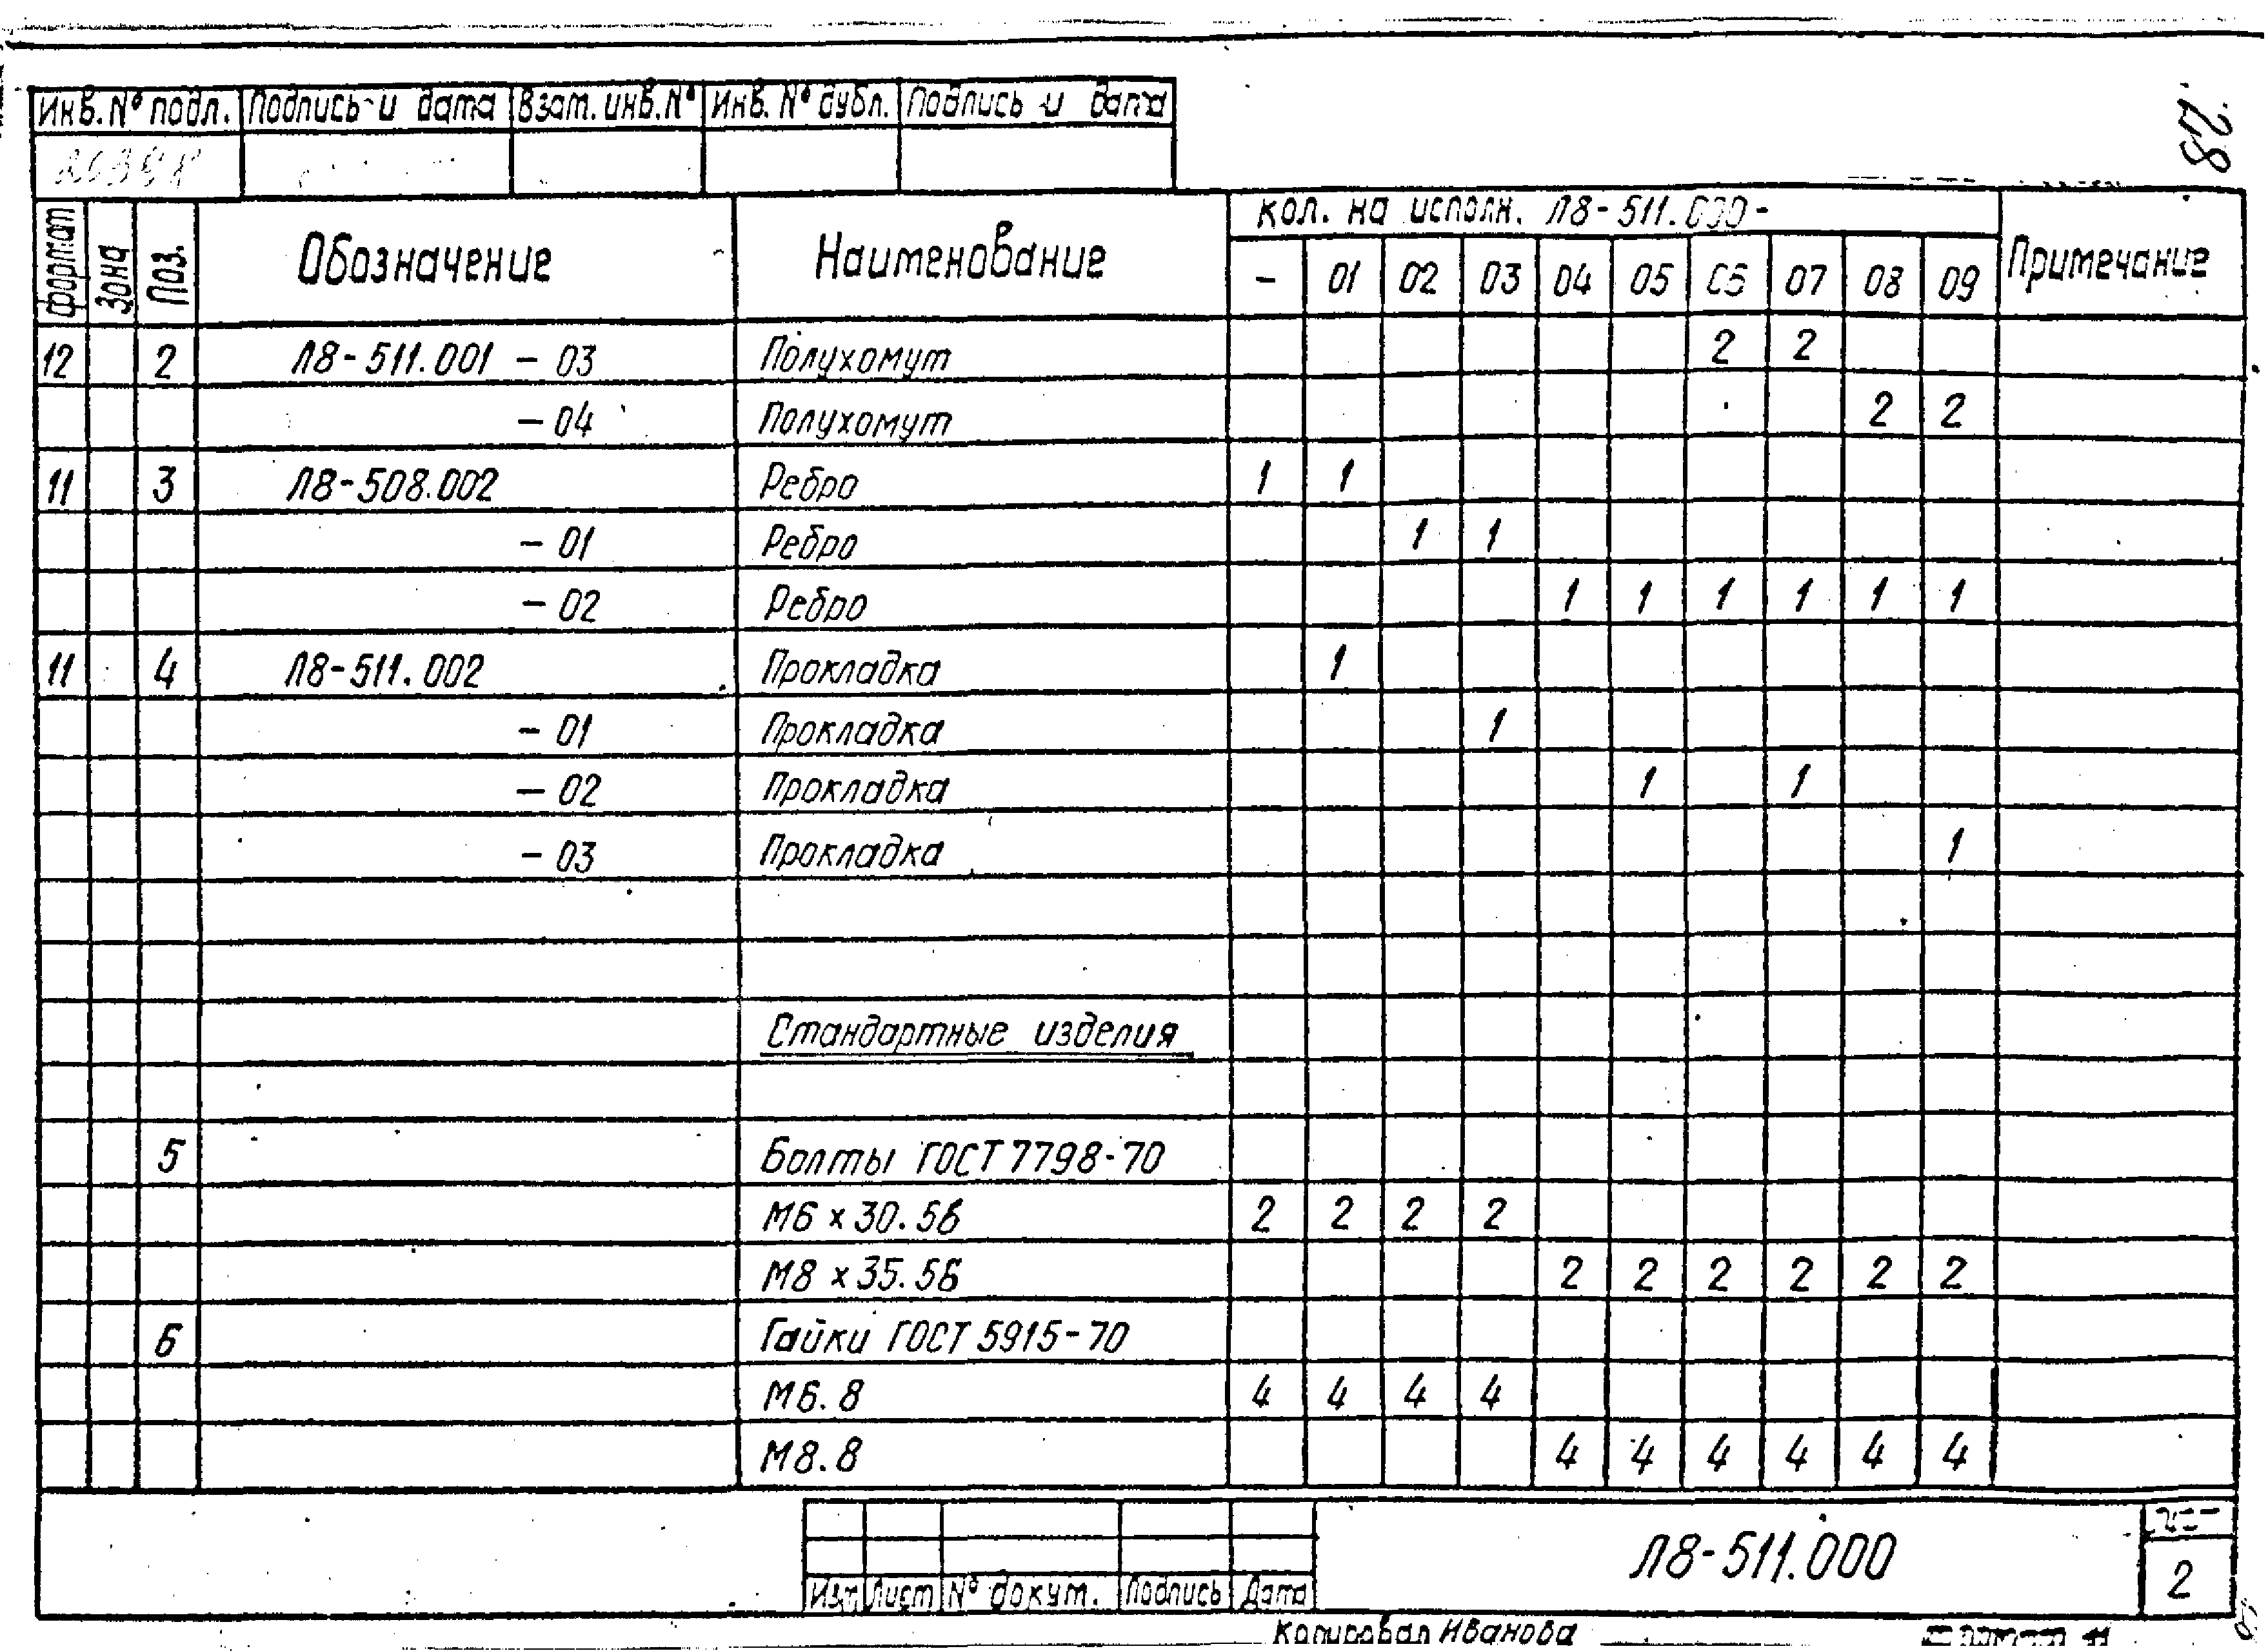 28
Инв. № подл. Подпись и дата Взат. инв. № Инв. № дубл. Подпись и дата
формат Зона Поз. Обозначение Наименование кол. на исполн. Л8-511.000- Примечание
- 01 02 03 04 05 06 07 08 09
12 2 Л8-511.001 - 03 Полухомут 2 2
- 04 Полухомут 2 2
11 3 Л8-508.002 Ребро 1 1
- 01 Ребро 1 1
- 02 Ребро 1 1 1 1 1 1
11 4 Л8-511.002 Прокладка 1
- 01 Прокладка 1
- 02 Прокладка 1 1
- 03 Прокладка 1
Стандартные изделия
5 Болты ГОСТ 7798-70
М6 х 30.56 2 2 2 2
М8 х 35.56 2 2 2 2 2 2
6 Гайки ГОСТ 5915-70
М6.8 4 4 4 4
М8.8 4 4 4 4 4 4
Изм Лист № докум. Подпись Дата
Л8-511.000
2
Копировал Иванова